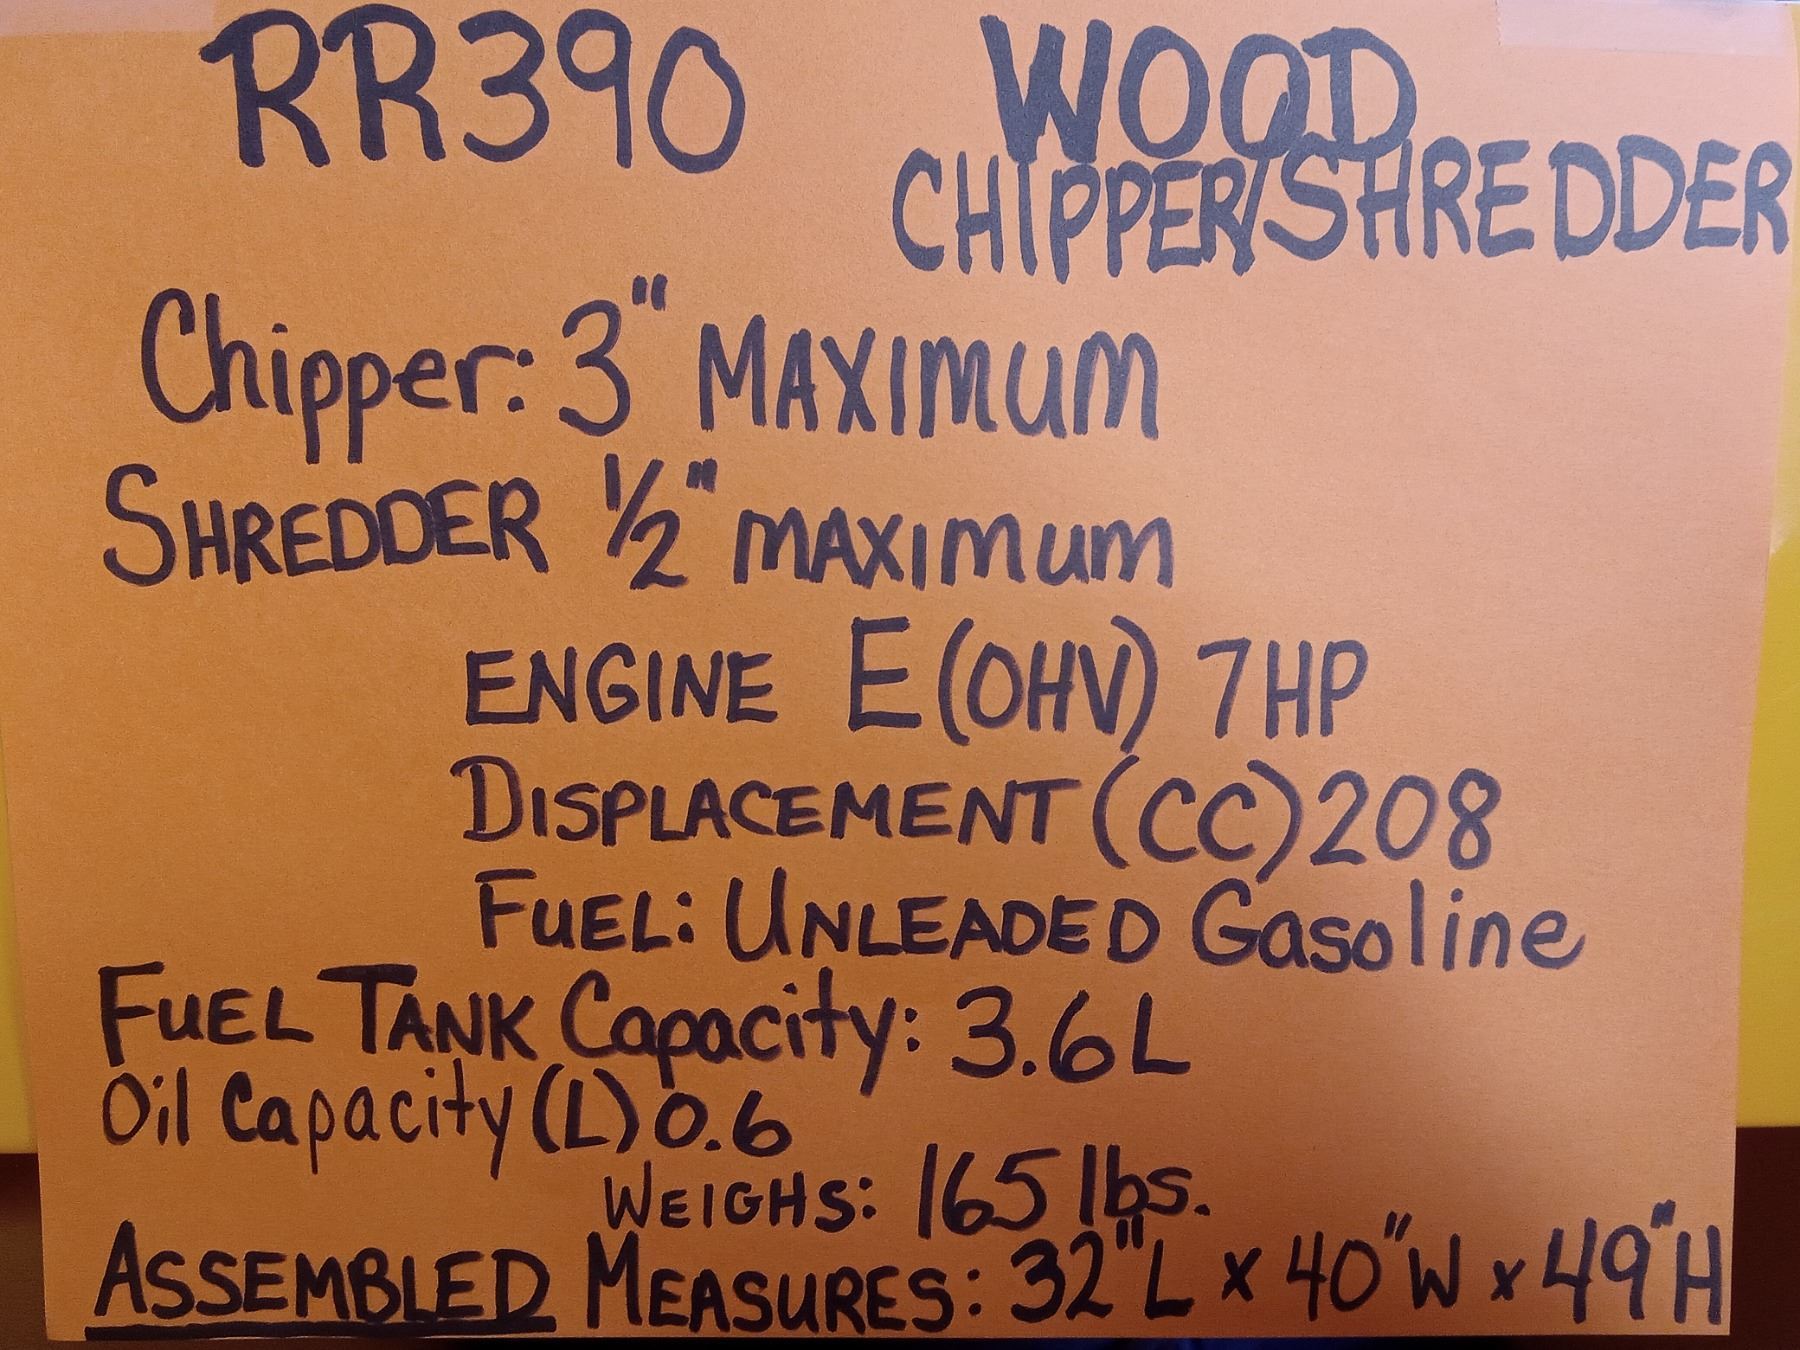 RR390
WOOD
CHIPPER/SHREDDER
Chipper: 3" MAXIMUM
SHREDDER 1/2" MAXIMUM
ENGINE E(OHV) 7HP
DISPLACEMENT (CC) 208
FUEL: UNLEADED Gasoline
FUEL TANK Capacity: 3.6L
Oil Capacity (L) 0.6
WEIGHS: 165 lbs.
ASSEMBLED MEASURES: 32"L x 40"W x 49"H